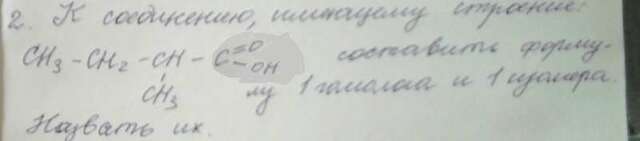 2. К соединению, имеющему строение:
CH₃ - CH₂ - CH - C =O -OH составить форму-
CH₃ лу 1 гомолога и 1 изомера.
Назвать их.